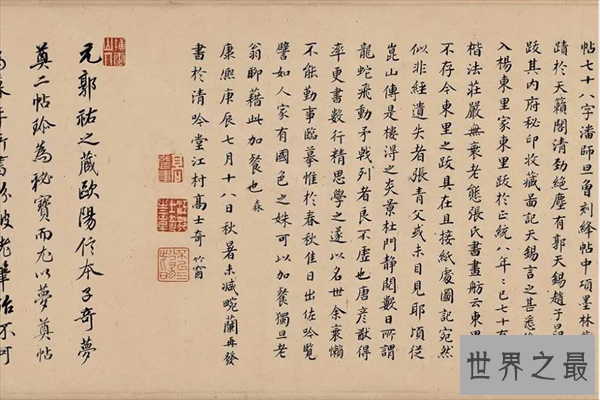 帖七十八字潘師旦曾刻絳帖中項墨林
蹟於天籟閣清勁絕塵有郭天錫趙子昂
跋其内府秘印收藏啚記天錫言之甚悉
入楊東里家東里跋於正統八年已七十有
楷法莊嚴無衰老態張氏書畫舫云東里
不存今東里之跋具在且接紙處圖記宛然
似非經遺失者張青父或未目見耶頃從
崑山傳是樓得之炎景杜門静閱數日所謂
龍蛇飛動矛戟列者良不虛也唐彥猷得
率更書數行精思學之遂以名世余衰懶
不能勤事臨摹惟於春秋佳日出佐吟覽
譬如人家有國色之姝可以加餐獨旦老
翁聊藉此加餐也 森
康熙庚辰七月十八日秋暑未減畹蘭再發
書於清吟堂江村髙士奇 竹窗
元郭祐之蔵歐陽信本子奇夢
奠二帖珎為秘寶而尤以夢奠帖
年所書
世界之最